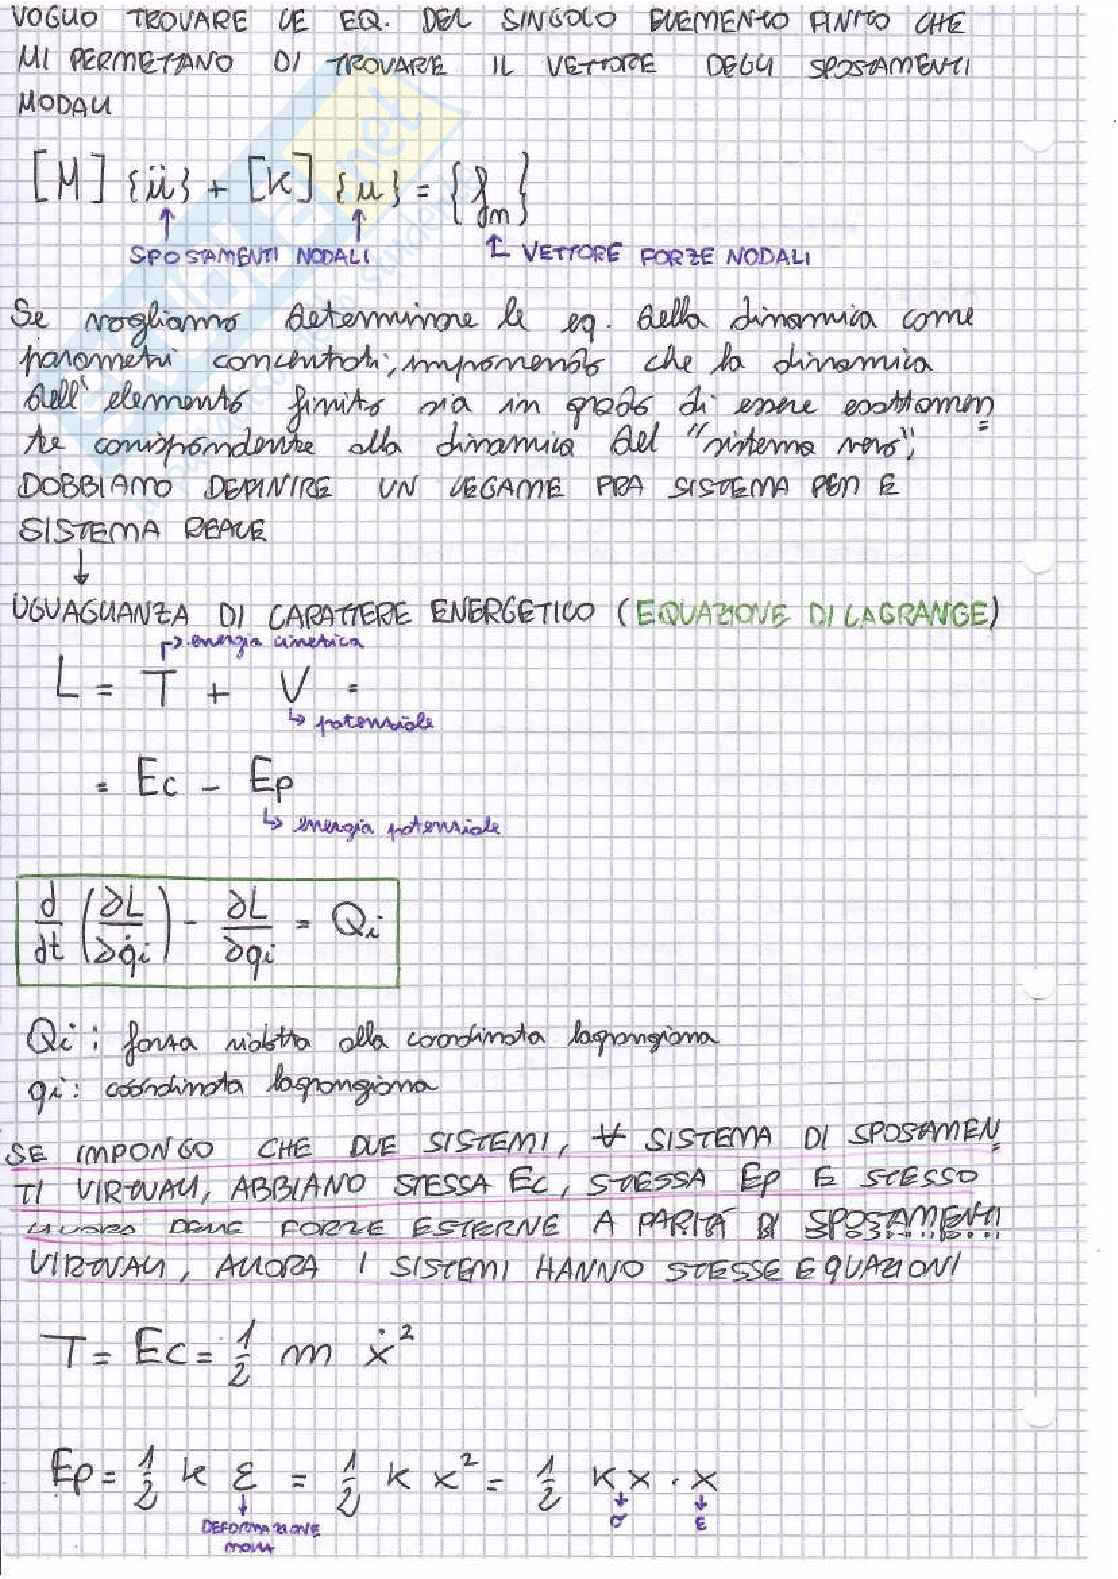 VOGLIO TROVARE LE EQ. DEL SINGOLO ELEMENTO FINITO CHE
MI PERMETTANO DI TROVARE IL VETTORE DEGLI SPOSTAMENTI
MODALI
[M] {ü} + [K] {u} = {fm}
SPOSTAMENTI NODALI VETTORE FORZE NODALI
Se vogliamo determinare le eq. della dinamica come
parametri concentrati, imponendo che la dinamica
dell'elemento finito sia in grado di essere esattamen
te corrispondente alla dinamica del "sistema vero",
DOBBIAMO DEFINIRE UN LEGAME FRA SISTEMA FEM E
SISTEMA REALE
↓
UGUAGLIANZA DI CARATTERE ENERGETICO (EQUAZIONE DI LAGRANGE)
↱ energia cinetica
L = T + V =
↳ potenziale
= Ec - Ep
↳ energia potenziale
d/dt (∂L/∂q̇i) - ∂L/∂qi = Qi
Qi : forza ridotta alla coordinata lagrangiana
qi : coordinata lagrangiana
SE IMPONGO CHE DUE SISTEMI, ∀ SISTEMA DI SPOSTAMEN
TI VIRTUALI, ABBIANO STESSA Ec, STESSA Ep E STESSO
LAVORO DELLE FORZE ESTERNE A PARITÀ DI SPOSTAMENTI
VIRTUALI, ALLORA I SISTEMI HANNO STESSE EQUAZIONI
T = Ec = 1/2 m ẋ²
Ep = 1/2 k ε = 1/2 k x² = 1/2 k x · x
DEFORMAZIONE σ ε
MOLLA